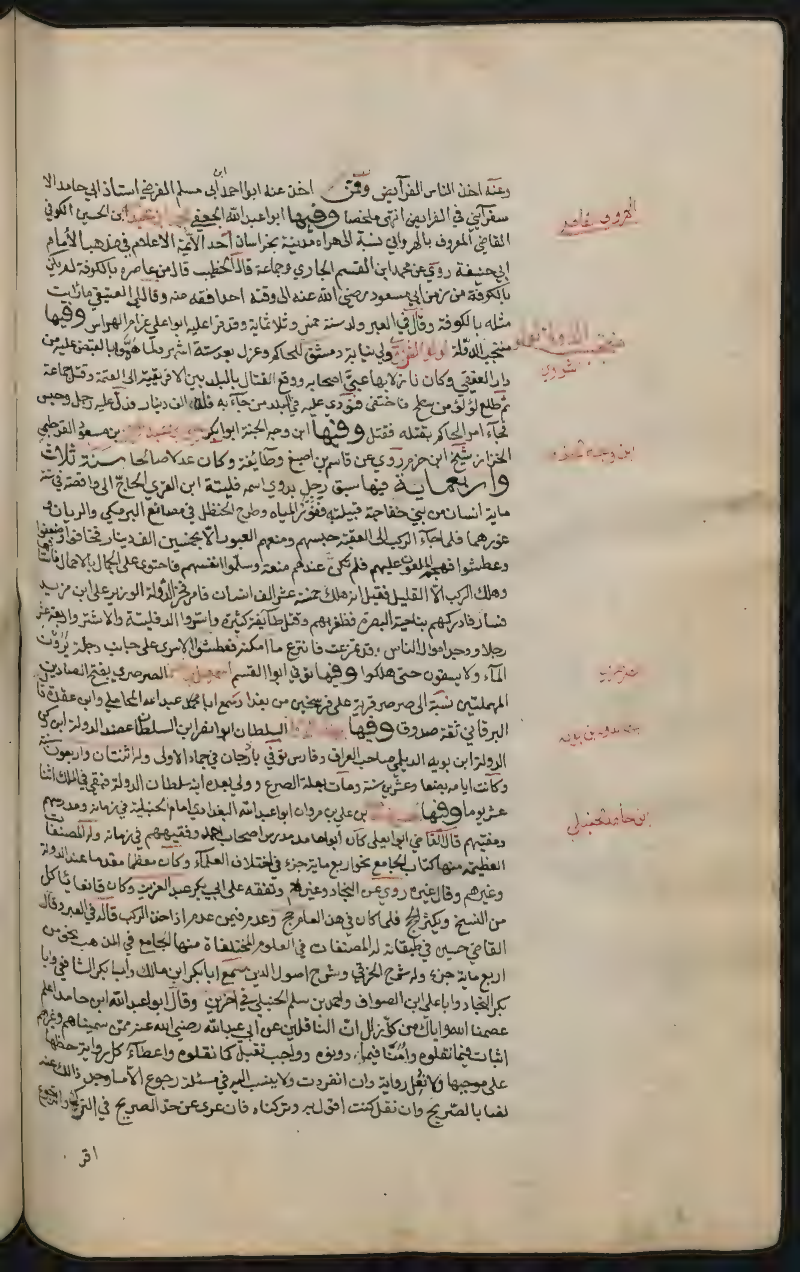 وعنه اخذ الناس الفرآيض وممن اخذ عنه ابو احمد ابن ابى مسلم الفرضي استاذ ابي حامد الا
سفرآيني في الفرايض انتهى ملخصا وفيها ابو عبد الله الجعفي بن الحسين الكوفي
القاضي المعروف بالهرواني نسبة الى هراه مدينة بخراسان أحد الآئمة الاعلام في مذهب الأمام
ابي حنيفة روي عن محمد ابن القسم المحاربي وجماعة قال الخطيب قال من عاصره بالكوفة لم يكن
بالكوفة من زمن ابي مسعود رضي الله عنه الى وقته احد افقه منه وقال لي العتيقي ما رايت
مثله بالكوفة وقال في العبر ولد سنة خمس وثلاثماية وقد قرا عليه ابو علي غلام الهراس وفيها
منتجب الدولة لولو ولي نيابة دمشق للحاكم وعزل بعد ستة اشهر ولما هموا بالقبض عليه من
دار العقيقي وكان نازلا بها عبى اصحابه ووقع القتال بالبلد بين الافريقين الى العتمة وقتل جماعة
ثم طلع لؤلؤ من سطح فاختفى فنودي عليه في البلد من جآء به فله الف دينار فدل عليه رجل وحبس
فجآء امر الحاكم بقتله فقتل وفيها ابن وجه الجنة ابو بكر بن مسعود القرطبي
الخزاز شيخ ابن حزم روي عن قاسم بن اصبغ وطايفة وكان عدلا صالحا سنة ثلاث
وأربعماية فيها سبق رجل بدوي اسمه فليتة ابن القوي الحاج الى واقصة في ستة
ماية انسان من بني خفاجة قبيلته فغور المياه وطرح الحنظل في مصانع البرمكي والريان و
غورهما فلما جآء الركب الى العقبة حبسهم ومنعهم العبور الا بخمسين الف دينار فخافوا وضعفوا
وعطشوا فهجم الملعون عليهم فلم تكن عندهم منعة وسلموا انفسهم فاحتوى على الجمال بالاحمال
وهلك الركب الا القليل فقيل انه هلك خمسة عشر الف انسان فامر فخر الدولة الوزير علي ابن مزيد
فسار فادركهم بناحية البصرة فظفر بهم وقتل طايفة كثيرة واسروا الد فليتة والاشتر واربعة عشر
رجلا ووجد اموال الناس قد تمزعت فانتزع ما امكنه فعطشوا الاسرى على جانب دجلة يرون
المآء ولا يسقون حتى هلكوا وفيها توفي ابو القسم الصرصري بفتح الصادين
المهملتين نسبة الى صرصر قرية على فرسخين من بغداد سمع ابا محمد عبد الله المحاملي وابن عقدة قا
البرقاني ثقة صدوق وفيها السلطان ابو نصر ابن السلطان عضد الدولة ابن ركن
الدولة ابن بويه الديلمي صاحب العراق وفارس توفي بارجان في جماد الاولى وله اثنتان واربعون سنة
وكانت ايامه بضعا وعشرين سنة ومات بعلة الصرع وولي بعده ابنه سلطان الدولة فبقي في الملك اثنا
عشر يوما وفيها بن علي بن مروان ابو عبد الله البغدادي امام الحنبلية في زمانه ومدرسهم
ومفتيهم قال القاضي ابو يعلى كان أبو حامد مدرس اصحاب احمد وفقيههم في زمانه وله المصنفات
العظيمة منها كتاب الجامع نحو اربع ماية جزء في اختلاف العلمآء وكان معظما مقدما عند الدولة
وغيرهم وقال غيره روي عن النجاد وغيره وتفقه على ابي بكر عبد العزيز وكان قانعا ياكل
من النسخ ويكثر الحج فلما كان في هذا العام حج وعدم فيمن عدم اذ اخذ الركب قاله في العبر وقال
القاضي حسين في طبقاته له المصنفات في العلوم المختلفاة منها الجامع في المذهب نحو من
اربع ماية جزء وله شرح الخرقي وشرح اصول الدين سمع ابا بكر ابن مالك وابا بكر الشافعي وابا
بكر النجاد وابا علي ابن الصواف واحمد بن سلم الحنبلي في اخرين وقال ابو عبد الله ابن حامد اعلم
عصمنا الله واياك من كل زلل ان الناقلين عن ابي عبد الله رضي الله عنه ممن سميناهم وغيرهم
اثبات فيما نقلوه وامنآ فيما دونوه وواجب تقبل كما نقلوه واعطآء كل رواية حظها
على موجبها ولا تعل رواية وان انفردت ولا ينسب اليه في مسئلة رجوع الا ما وجد ذالك عنه
نصا بالصريح وان نقل كنت اقول به وتركناه فان عرى عن حد الصريح في الترك والرجوع
اقر
الهروى قاصر
منتجب الدولة لولو
البشراوي
ابن وجه الجنه
ابن حامد الحنبلي